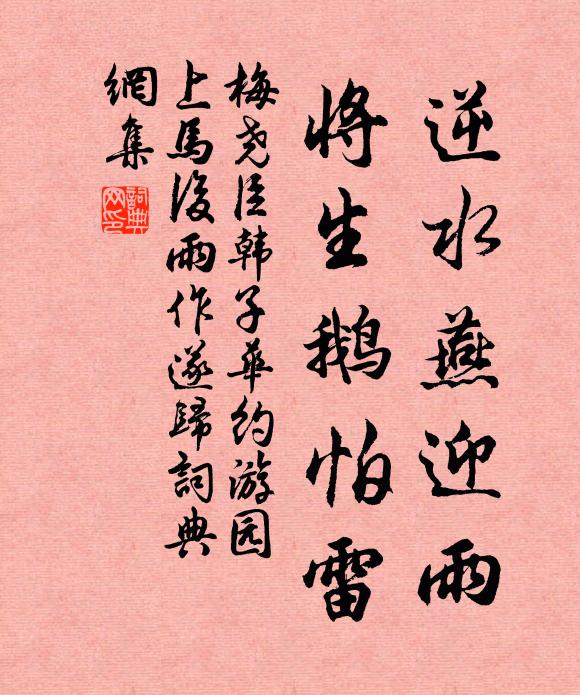 逆水燕迎雨
将生鹅怕雷
梅尧臣韩子华约游园
上馬後雨作遂歸詞典
網集
詞典
网印